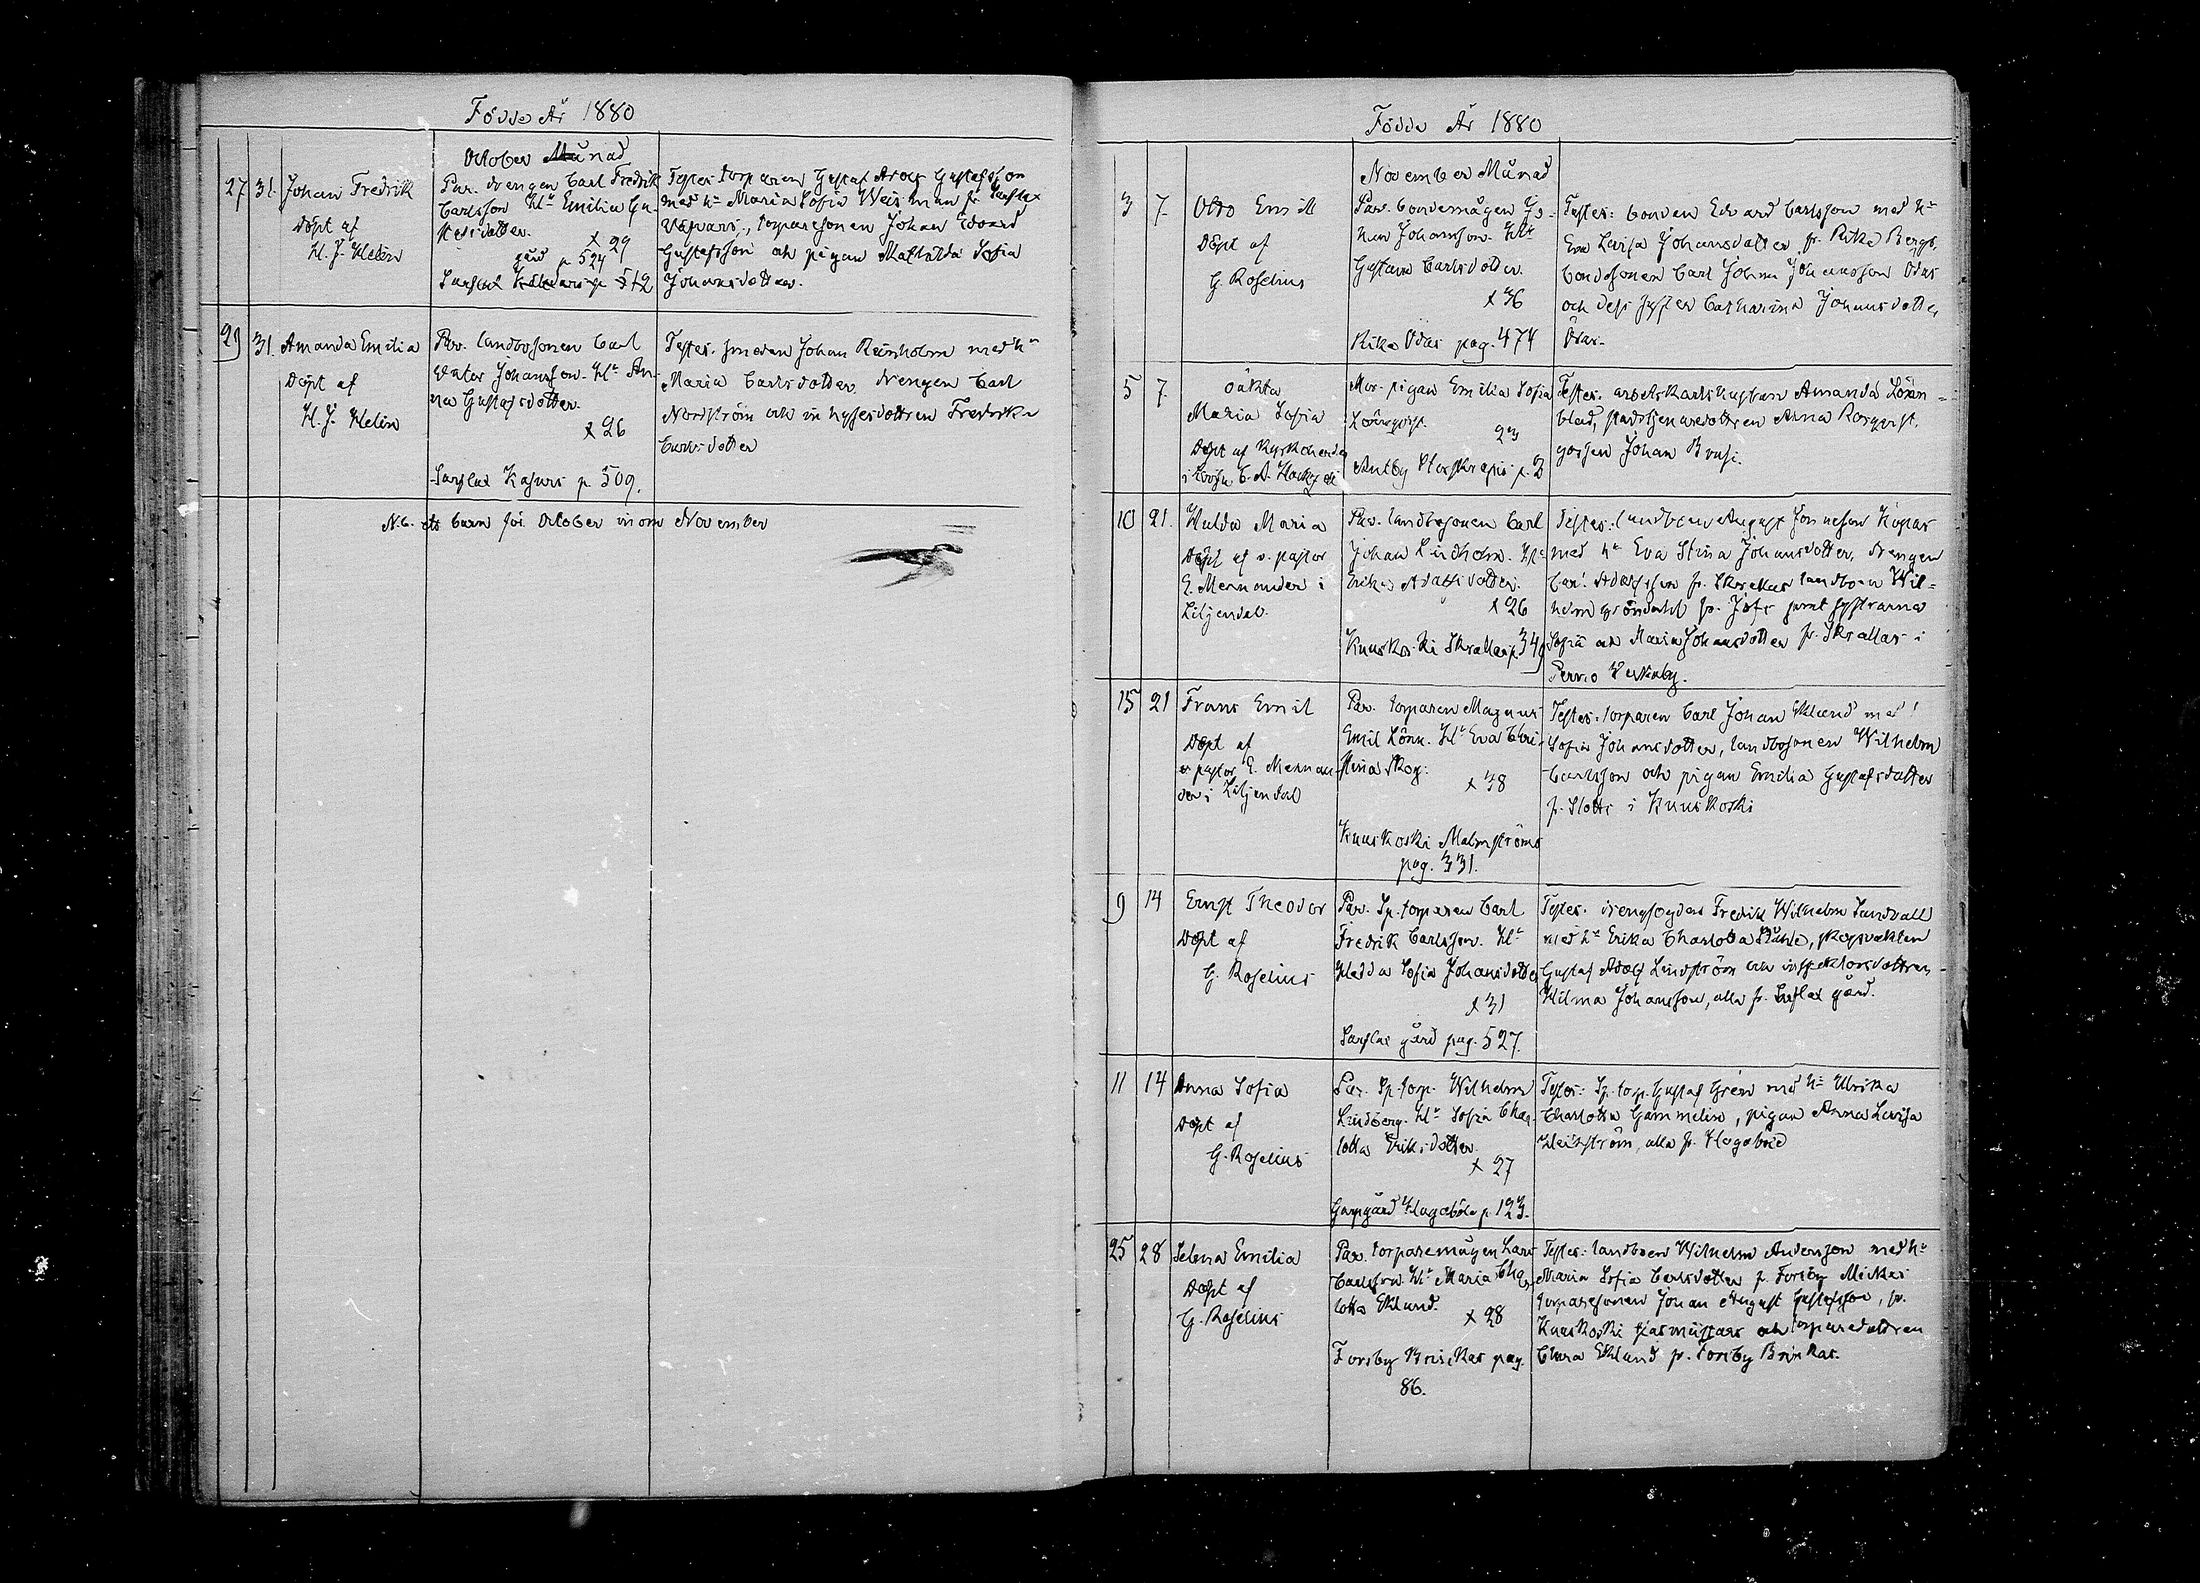 Födde År 1880
October Månad
27 31. Johan Fredrik
Döpt af
H. J. Helin
Par. drengen Carl Fredrik
Carlsson H:n Emilia Gu-
stafsdotter.
x 29
gård p 524
Sarflax p 512
Testes: torparen Gustaf Adolf Gustafsson
med h:n Maria Sofia Weisman fr. Sarflax
torparesonen Johan Edvard
Gustafsson och pigan Mathilda Sofia
Johansdotter.
29 31. Amanda Emilia
Döpt af
H. J. Helin
Par. landbosonen Carl
Johansson. H:n An-
na Gustafsdotter.
x 26
Sarflax Kasurs p 509.
Testes. smeden Johan Reinholm med h:n
Maria Carlsdotter, drengen Carl
Nordström och inhysesdottren Fredrika
Carlsdotter
N.b. barn för October inom November
Födde År 1880
November Månad
3 7. Otto Emil
Döpt af
G. Roselius
Par. bondemågen Jo-
han Johansson. H:n
Gustava Carlsdotter.
x 36
Rika Odas pag. 474
Testes: bonden Edvard Carlsson med h:n
Eva Lovisa Johansdotter fr. Rika Bergs,
bondsonen Carl Johan Johansson Odas
och dess syster Catharina Johansdotter
Odas.
5 7. oäkta
Maria Sofia
Döpt af Kyrkoherden
i Lovisa C. A.
Mor. pigan Emilia Sofia
Lövqvist.
23
Antby p. 2
Testes. arbetskarlshustrun Amanda Lönn-
blad, stadstjenaredottren Anna Rosqvist,
gossen Johan
10 21. Hulda Maria
Döpt af v. pastor
E. Mennander i
Liljendal.
Par. landbosonen Carl
Johan Lindholm. H:n
Erika Adolfsdotter.
x 26
Kuuskoski Skrallas p. 349
Testes: landbon August Johnsson
med h:n Eva Stina Johansdotter, drengen
Carl Adolfsson fr. Skrallas landbon Wil-
helm Gröndahl fr. samt systrarna
Sofia och Maria Johansdotter fr. Skrallas i
Perno
15 21 Frans Emil
Döpt af
v pastor E. Mennan-
der i Liljendal
Par. torparen Magnus
Emil Lönn. H:n Eva Chri-
stina Skog.
x 38
Kuuskoski Malmströms
pag. 331.
Testes. torparen Carl Johan Eklund med
Sofia Johansdotter, landbosonen Wilhelm
Carlsson och pigan Emilia Gustafsdotter
fr. Slotts i Kuuskoski
9 14 Ernst Theodor
Döpt af
G. Roselius
Par. Sp. torparen Carl
Fredrik Carlsson. H:n
Hedda Sofia Johansdotter
x 31
Sarflax gård pag. 527.
Testes. drengfogden Fredrik Wilhelm Sundvall
med h:n Erika Charlotta Ståhle, skogsvakten
Gustaf Adolf Lindström och inspektorsdottren
Hilma Johansson, alla fr. Sarflax gård.
11 14 Anna Sofia
Döpt af
G. Roselius
Par. Sp. torp. Wilhelm
Lindberg. H:n Sofia Char-
lotta Eriksdotter
x 27
Garpgård Hagaböle p. 123.
Testes: Sp. torp. Gustaf Grén med h:n Ulrika
Charlotta Gammelin, pigan Anna Lovisa
alla fr. Hagaböle
25 28 Selena Emilia
Döpt af
G. Roselius
Par. torparemågen Lars
Carlsson. H:n Maria Char-
lotta Eklund.
x 28
Forsby Brinkas pag.
86.
Testes: landbon Wilhelm Andersson med h:n
Maria Sofia Carlsdotter fr. Forsby Mickas
torparesonen Johan August Gustafsson, fr.
Kuuskoski och torparedottren
Clara Eklund fr. Forsby Brinkas.